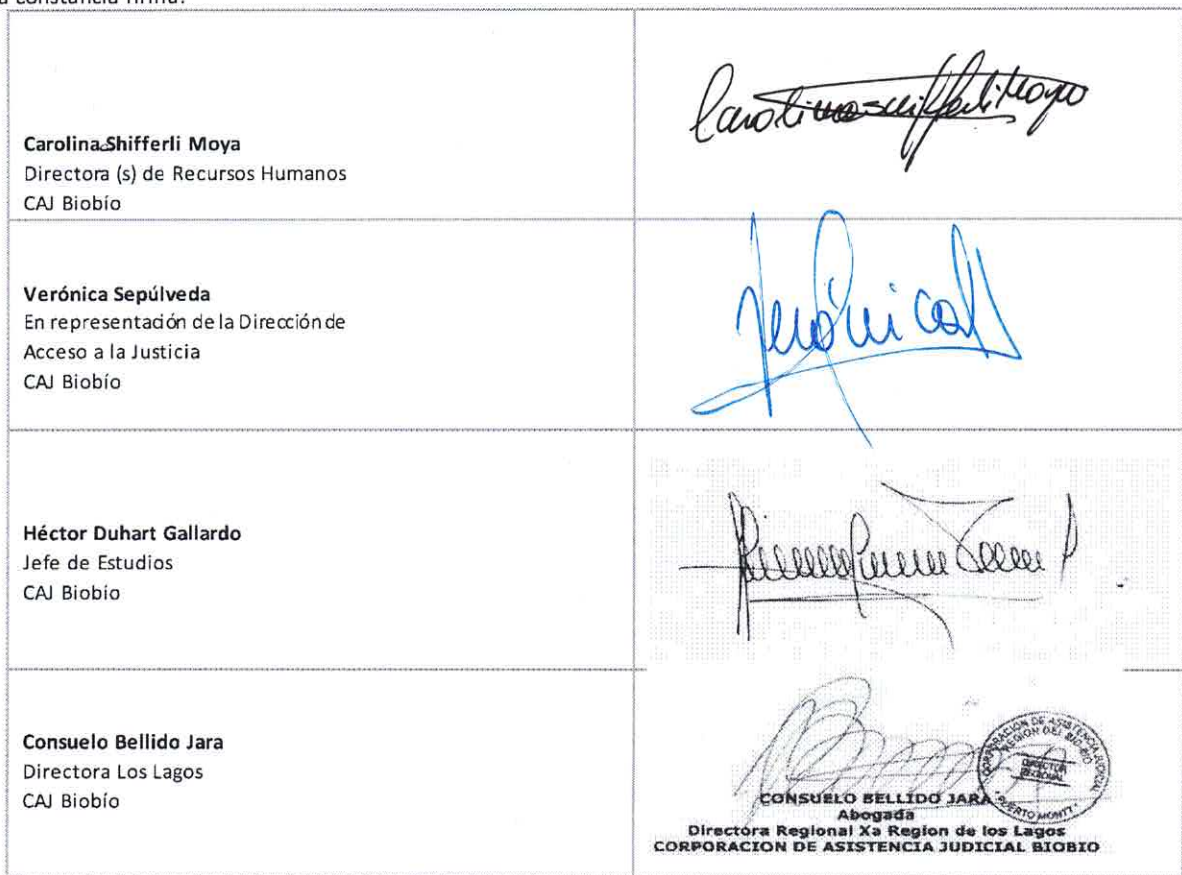 constancia firma:
Carolina Shifferli Moya
Directora (s) de Recursos Humanos
CAJ Biobío
Carolina Schifferli Moya
Verónica Sepúlveda
En representación de la Dirección de
Acceso a la Justicia
CAJ Biobío
Verónica
Héctor Duhart Gallardo
Jefe de Estudios
CAJ Biobío
Consuelo Bellido Jara
Directora Los Lagos
CAJ Biobío
CORPORACIÓN DE ASISTENCIA JUDICIAL
REGION DEL BIO-BIO
DIRECTOR
REGIONAL
* PUERTO MONTT *
CONSUELO BELLIDO JARA
Abogada
Directora Regional Xa Region de los Lagos
CORPORACION DE ASISTENCIA JUDICIAL BIOBIO